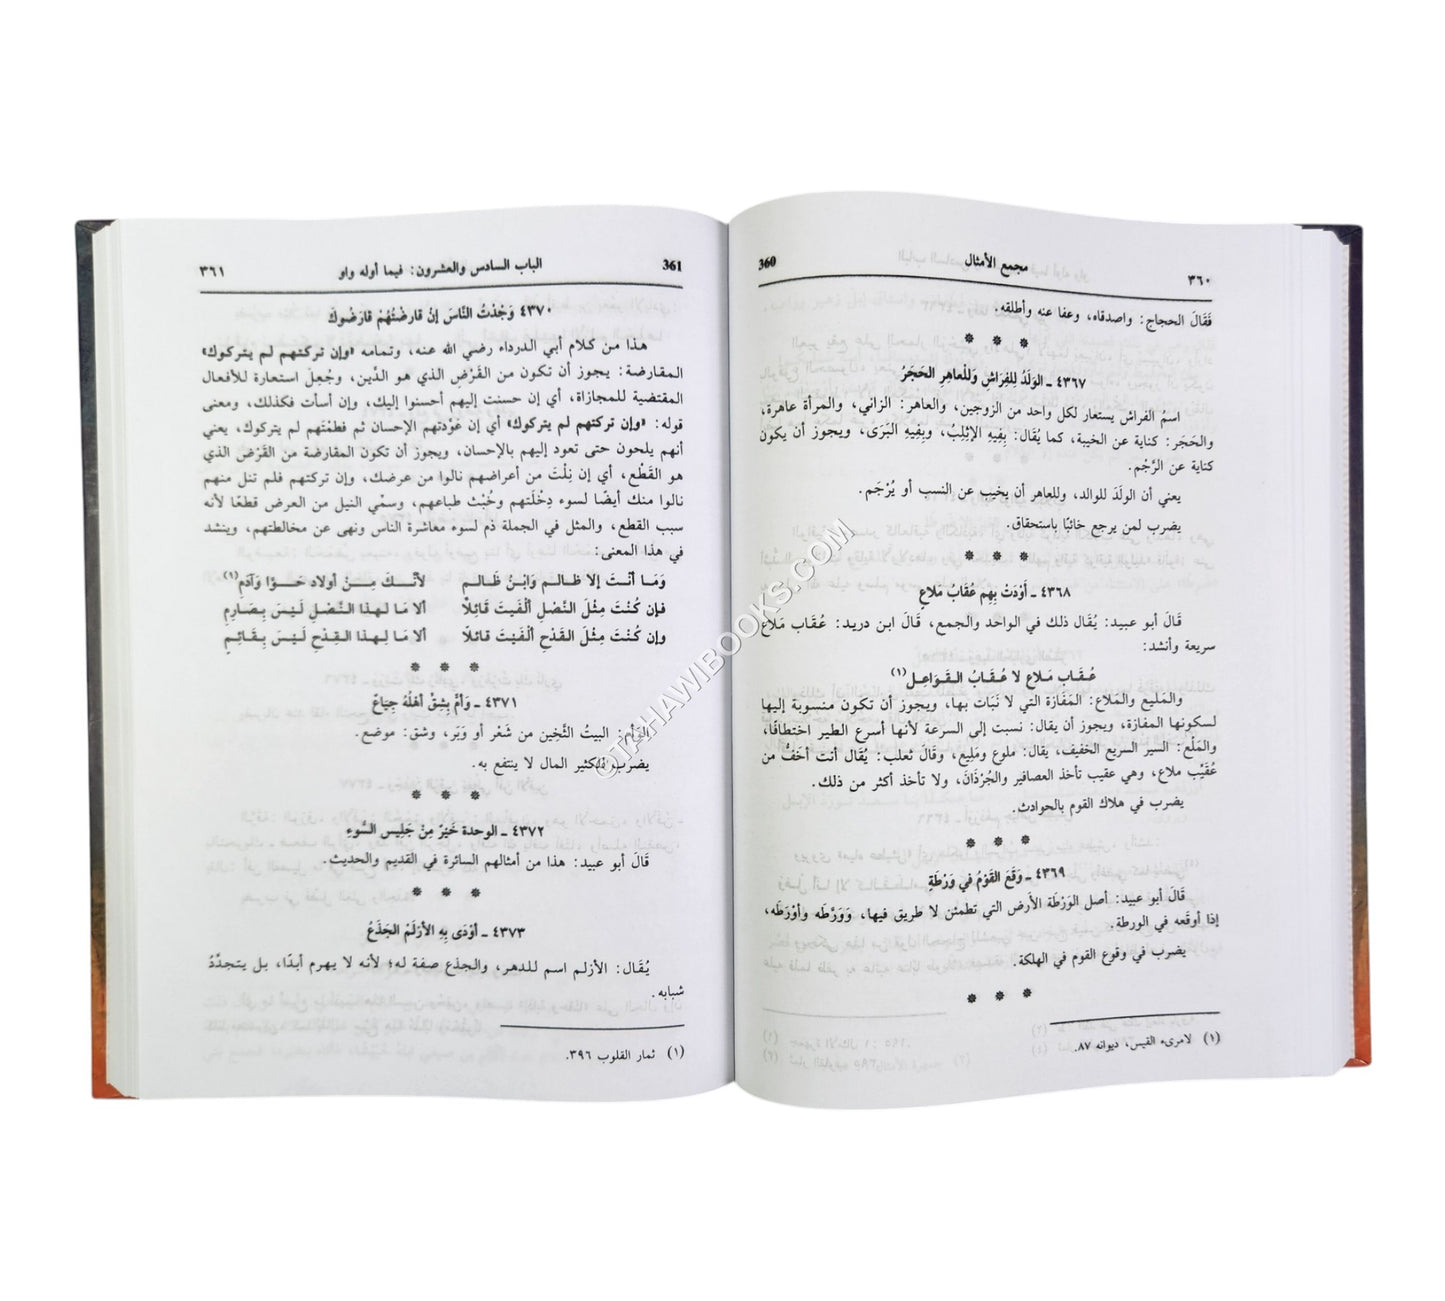 ٣٦٠ مجمع الأمثال 360
فَقَالَ الحجاج: واصدقاه، وعفا عنه وأطلقه.
* * *
٤٣٦٧ ـ الوَلَدُ لِلفِرَاشِ وَلْلعاهِرِ الحَجَرُ
اسمُ الفراش يستعار لكل واحد من الزوجين، والعاهر: الزاني، والمرأة عاهرة،
والحَجَر: كناية عن الخيبة، كما يُقَال: بِفِيهِ الإثْلِبُ، وبفِيهِ البَرَى، ويجوز أن يكون
كناية عن الرَّجْم.
يعني أن الولَدَ للوالد، وللعاهر أن يخيب عن النسب أو يُرْجَم.
يضرب لمن يرجع خائبًا باستحقاق.
* * *
٤٣٦٨ ـ أَوْدَتْ بِهِم عُقَابُ مَلاعِ
قَالَ أبو عبيد: يُقَال ذلك في الواحد والجمع، قَالَ ابن دريد: عُقَاب مَلاع
سريعة وأنشد:
عُـقَاب مَـلاع لا عُـقَابُ الـقَـوَاعِـل(١)
والمَليع والمَلاع: المَفَازَة التي لا نَبَات بها، ويجوز أن تكون منسوبة إليها
لسكونها المفازة، ويجوز أن يقال: نسبت إلى السرعة لأنها أسرع الطير اختطافًا،
والمَلْع: السير السريع الخفيف، يقال: ملوع ومَلِيع، وقَالَ ثعلب: يُقَال أنت أخَفُّ من
عُقَيِّب ملاع، وهي عقيب تأخذ العصافير والجُرْذَانَ، ولا تأخذ أكثر من ذلك.
يضرب في هلاك القوم بالحوادث.
* * *
٤٣٦٩ ـ وَقَعَ القَوْمُ في وَرْطَةٍ
قَالَ أبو عبيد: أصل الوَرْطَة الأرض التي تطمئن لا طريق فيها، وَوَرَّطَه وأوْرَطَه،
إذا أوقَعه في الورطة.
يضرب في وقوع القوم في الهلكة.
* * *
(١) لامرىء القيس، ديوانه ٨٧.
361 الباب السادس والعشرون: فيما أوله واو ٣٦١
٤٣٧٠ وَجْدْتُ النَّاسَ إنْ قارضْتُهُمْ قارَضُوكَ
هذا من كلام أبي الدرداء رضي الله عنه، وتمامه «وإن تركتهم لم يتركوك»
المقارضة: يجوز أن تكون من القَرْض الذي هو الدّين، وجُعِلَ استعارة للأفعال
المقتضية للمجازاة، أي إن حسنت إليهم أحسنوا إليك، وإن أسأت فكذلك، ومعنى
قوله: «وإن تركتهم لم يتركوك» أي إن عَوّدتهم الإحسان ثم فطمْتَهم لم يتركوك، يعني
أنهم يلحون حتى تعود إليهم بالإحسان، ويجوز أن تكون المقارضة من القَرْض الذي
هو القَطْع، أي إن نِلْتَ من أعراضهم نالوا من عرضك، وإن تركتهم فلم تنل منهم
نالوا منك أيضًا لسوء دِخْلَتهم وخُبْث طباعهم، وسمّي النيل من العرض قطعًا لأنه
سبب القطع، والمثل في الجملة ذم لسوء معاشرة الناس ونهى عن مخالطتهم، وينشد
في هذا المعنى:
وَمَا أنْتَ إلا ظـالـم وَابْـنُ ظَـالِـم لأنَّــكَ مِــنْ أولاد حَــوَّا وَآدَمِ(١)
فإن كُنْتَ مِثْلَ النَّصْلِ ألْفَيتَ قَائِلًا ألا مَا لِـهذا الـنَّصْلِ لَيْسَ بِـصَارِمِ
وإن كُنْتَ مِثْلَ القَدْحِ ألْفَيْتَ قائلًا ألا مَا لِـهذا الـقِـدْحِ لَيْسَ بِـقَـائِـمِ
* * *
٤٣٧١ ـ وَأمٌ بِشِقْ أهْلُهُ جِيَاعٌ
الوَأم: البيتُ الثَّخِين من شَعْر أو وَبَر، وشق: موضع.
يضرب للكثير المال لا ينتفع به.
* * *
٤٣٧٢ ـ الوحدة خَيْرٌ مِنْ جَلِيسِ السُّوءِ
قَالَ أبو عبيد: هذا من أمثالهم السائرة في القديم والحديث.
* * *
٤٣٧٣ ـ أوْدَى بِهِ الأزْلَمْ الجَذَعُ
يُقَال: الأزلم اسم للدهر، والجذع صفة له؛ لأنه لا يهرم أبدًا، بل يتجدَّدُ
شبابه.
(١) ثمار القلوب ٣٩٦.
©TAHAWIBOOKS.COM